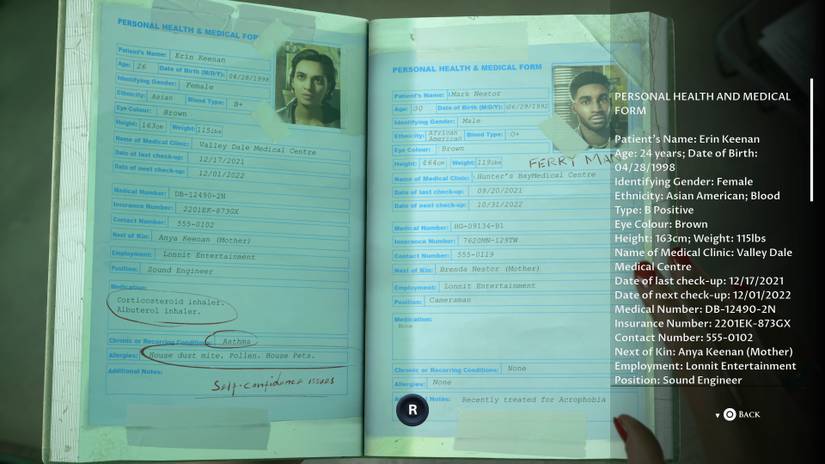 PERSONAL HEALTH & MEDICAL FOR
Patient's Name: Erin Keenan
Age: 26 Date of Birth (M/D/Y): 04/28/1998
Identifying Gender: Female
Ethnicity: Asian Blood Type: B+
Eye Colour: Brown
Height: 163cm Weight: 115lbs
Name of Medical Clinic: Valley Dale Medical Centre
Date of last check-up: 12/17/2021
Date of next check-up: 12/01/2022
Medical Number: DB-12490-2N
Insurance Number: 2201EK-873GX
Contact Number: 555-0102
Next of Kin: Anya Keenan (Mother)
Employment: Lonnit Entertainment
Position: Sound Engineer
Medication:
Corticosteroid inhaler.
Albuterol inhaler.
Chronic or Recurring Conditions: Asthma
Allergies: House dust mite. Pollen. House Pets.
Additional Notes:
Self-confidence issues
PERSONAL HEALTH & MEDICAL FORM
Patient's Name: Mark Nestor
Age: 30 Date of Birth (M/D/Y): 06/29/1992
Identifying Gender: Male
Ethnicity: African American Blood Type: O+
Eye Colour: Brown
Height: Weight:
FERRY MAN
Name of Medical Clinic: Hunter's BayMedical Centre
Date of last check-up: 09/20/2021
Date of next check-up: 10/31/2022
Medical Number: HG-09134-B1
Insurance Number: 7620MN-129TW
Contact Number: 555-0119
Next of Kin: Brenda Nestor (Mother)
Employment: Lonnit Entertainment
Position: Cameraman
Medication:
None
Chronic or Recurring Conditions: None
Allergies: None
Notes: Recently treated for Acrophobia
R
PERSONAL HEALTH AND MEDICAL
FORM
Patient's Name: Erin Keenan
Age: 24 years; Date of Birth:
04/28/1998
Identifying Gender: Female
Ethnicity: Asian American; Blood
Type: B Positive
Eye Colour: Brown
Height: 163cm; Weight: 115lbs
Name of Medical Clinic: Valley Dale
Medical Centre
Date of last check-up: 12/17/2021
Date of next check-up: 12/01/2022
Medical Number: DB-12490-2N
Insurance Number: 2201EK-873GX
Contact Number: 555-0102
Next of Kin: Anya Keenan (Mother)
Employment: Lonnit Entertainment
Position: Sound Engineer
BACK